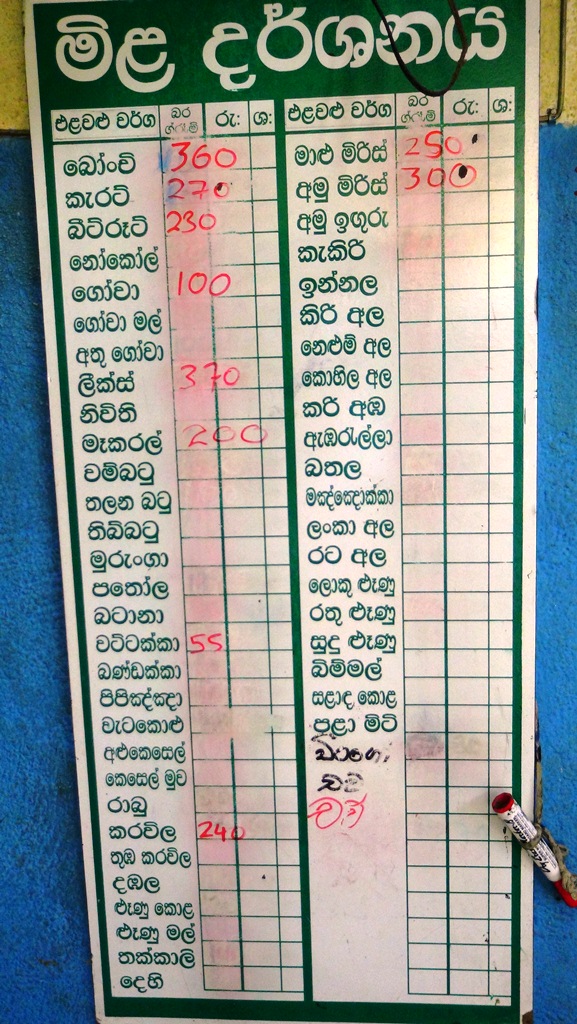 මිළ දර්ශනය
එළවළු වර්ග බර ග්රෑම් රු: ශ:
බෝංචි 360
කැරට් 270
බීට්රූට් 230
නෝකෝල්
ගෝවා 100
ගෝවා මල්
අතු ගෝවා
ලීක්ස් 370
නිවිති
මෑකරල් 200
වම්බටු
තලන බටු
තිබ්බටු
මුරුංගා
පතෝල
බටානා
වට්ටක්කා 55
බණ්ඩක්කා
පිපිඤ්ඤා
වැටකොළු
අළුකෙසෙල්
කෙසෙල් මුව
රාබු
කරවිල 240
තුඹ කරවිල
දඹල
ළූණු කොළ
ළූණු මල්
තක්කාලි
දෙහි
එළවළු වර්ග බර ග්රෑම් රු: ශ:
මාළු මිරිස් 250
අමු මිරිස් 300
අමු ඉඟුරු
කැකිරි
ඉන්නල
කිරි අල
නෙළුම් අල
කොහිල අල
කරි අඹ
ඇඹරැල්ලා
බතල
මඤ්ඤොක්කා
ලංකා අල
රට අල
ලොකු ළූණු
රතු ළූණු
සුදු ළූණු
බිම්මල්
සළාද කොළ
පළා මිටි